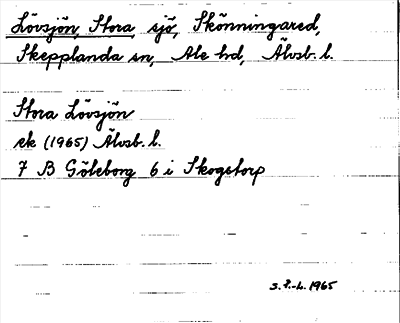 Lövsjön, Stora, sjö, Skönningared,
Skepplanda sn, Ale hd, Älvsb. l.
Stora Lövsjön
ek (1965) Älvsb. l.
7 B Göteborg 6 i Skogstorp
1965